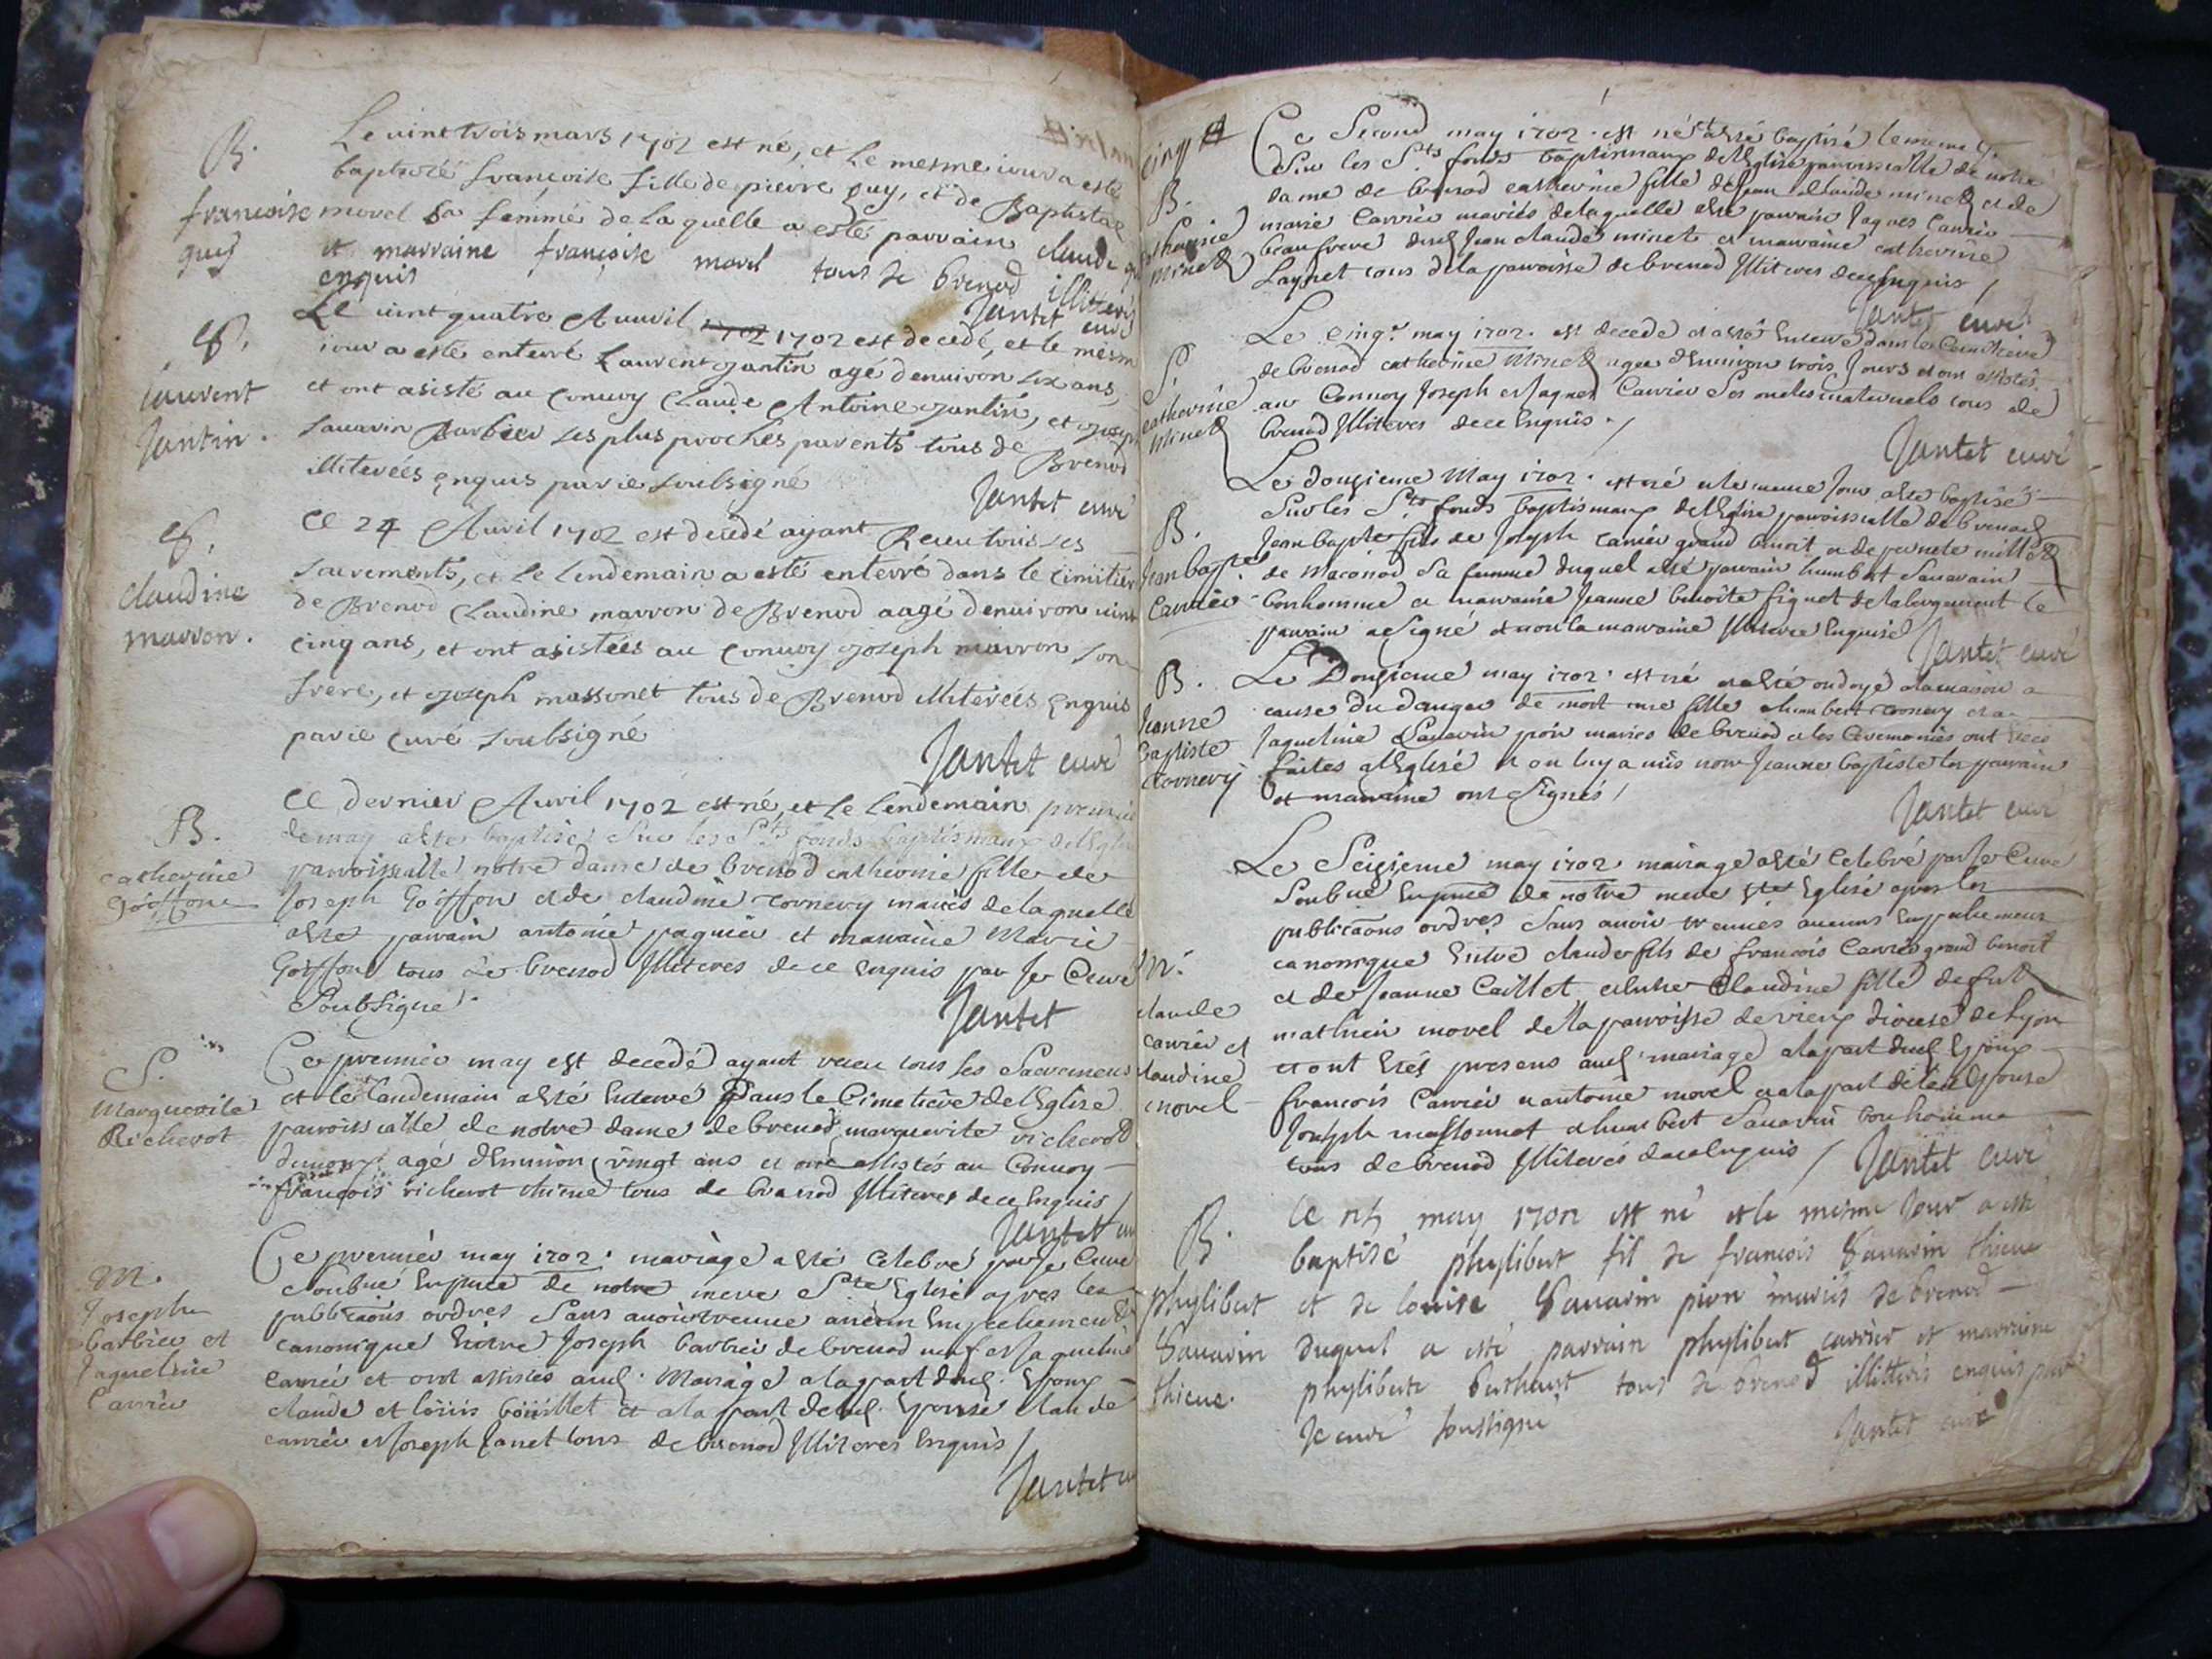 B.
françoise
guy
Le vint trois mars 1702 est né, et le mesme iour a esté
baptizéé françoise fille de pierre guy, et de Baptistae
morel sa femme de laquelle a esté parrain claude
et marraine françoise morel tous de brenod illitterés
enquis
Jantet curé
S.
laurent
Jantin.
Le uint quatre Auuril 1702 1702 est decedé, et le mesm
iour a esté enterré Laurent Jantin agé denuiron six ans,
et ont asisté au conuoy Claude Antoine Jantin, et Joseph
sauarin barbier ses plus proches parents tous de Brenod
illiterées enquis par ie soubsigné
Jantet curé
S.
claudine
marron.
Ce 24 Auril 1702 est decedé ayant Receu tous ses
sacrements, et le lendemain a esté enterré dans le cimitier
de Brenod Claudine marron de Brenod aagé denuiron uint
cinq ans, et ont asistées au conuoy Joseph marron son
frere, et Joseph massonet tous de Brenod illiterées enquis
par ie curé soubsigné
Jantet curé
B.
catherine
Goiffon
Ce dernier Auril 1702 est né, et le lendemain premie
de may a esté baptisé sur les Sts fonds baptismaux de l'Eglise
parroissialle notre dame de brenod catherine fille de
Joseph Goiffon et de claudine cornery mariés de laquelle
a esté parrain antoine paquier et marraine Marie
Goiffon tous de brenod Illiteres de ce enquis par Je Curé
Soubsigné.
Jantet
S.
Marguerite
Richerot
Ce premier may est decedé ayant receu tous ses Sacremens
et le landemain a esté Enterré Dans le Cimetiere de l'Eglise
parroissialle de notre dame de brenod marguerite richerot
agé d'Enuiron vingt ans et ont assistés au Conuoy
françois richerot thiene tous de brenod Illiteres de ce Enquis
Jantet cu
M.
Joseph
barbier et
Jaqueline
Carrier
Ce premier may 1702. mariage a esté Celebré par Je Curé
Soubné En pnce de notre mere Ste Eglise apres les
publicaons ordres Sans auoir treuué aucun Empechement
canonique Entre Joseph barbier de brenod uef et Jaqueline
carrier et ont assistes aud. Mariage a la part dud. Epoux
claude et louis boüillet et a la part de lad. Epouse claude
carrier et Joseph Janet tous de brenod Illiteres Enquis /
Jantet cu
cinq
B.
catherine
minet
Ce Second may 1702. est né et a esté baptisé le meme J.
Sur les Sts fonds baptismaux de l'Eglise parroissialle de notre
dame de brenod catherine fille de Jean claude minet et de
marie Carrier mariés de laquelle a esté parrain Jaques Carrier
beaufrere dud Jean claude minet et marraine catherine
Laynet tous de la parroisse de brenod Illiteres de ce Enquis /
Jantet curé
S.
catherine
minet
Le cinq.e may 1702. est decedé et a esté Enterré dans le Cemitiere
de brenod catherine Minet agee d'Enuiron trois Jours et ont assistés
au Conuoy Joseph et Jaques Carrier Ses oncles maternels tous de
brenod Illiteres de ce Enquis. /
Jantet curé
B.
Jean baptte
Carrier
Le douzieme May 1702. est né et le meme Jour a esté baptisé
Sur les Sts fonds baptismaux de l'Eglise parroissialle de brenod
Jean baptte fils de Joseph carrier grand benoit et de pernete millet
de Maconod Sa femme duquel a esté parrain humbert Sauarain
bonhomme et marraine Jeanne benoite figuet de labergement le
parrain a Signé et non la marraine Illiteree Enquise
Jantet curé
B.
Jeanne
baptiste
Cornery
Le Douzieme may 1702. est né et a esté ondoyé a la maison a
cause du danger de mort une fille a humbert cornery et a
Jaqueline Sauarin pion mariés de brenod et les Ceremonies ont
faites a l'Eglise et on luy a mis nom Jeanne baptiste les parrain
et marraine ont Signés /
Jantet curé
M.
claude
carrier et
claudine
morel
Le Seizieme may 1702. mariage a esté Celebré par Je Curé
Soubné En pnce de notre mere Ste Eglise apres les
publicaons ordres Sans auoir treuués aucuns Empechemens
canonique Entre claude fils de françois Carrier grand benoit
et de Jeanne Caillet et entre Claudine fille de fut
mathieu morel de la parroisse de vieux diocese de lyon
et ont Estés presens aud. mariage a la part dud Epoux
françois Carrier et antoine morel et a la part de lad Epouse
Joseph massonnet et humbert Sauarin bonhomme
tous de brenod Illiterés de ce Enquis /
Jantet curé
B.
phylibert
Sauarin
thiene.
le may 1702 est né et le mesme Jour a esté
baptisé phylibert fil de françois Sauarin thiene
et de louise Sauarin pion mariés de brenod
duquel a esté parrain phylibert carrier et marraine
phyliberte Berthaut tous de brenod illitterés enquis par
Je curé soussigné
Jantet curé